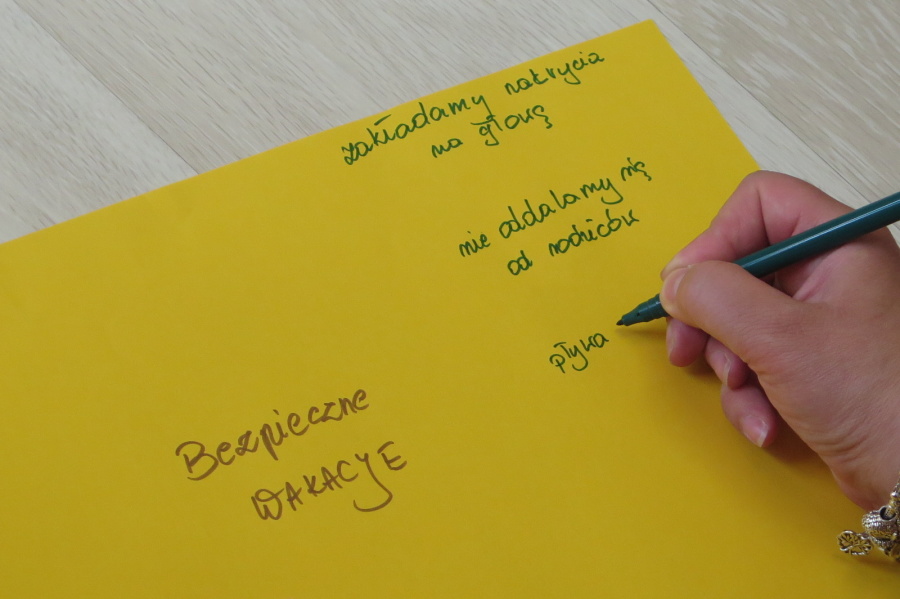 zakładamy nakrycia
na głowę
nie oddalamy się
od rodziców
pływa
Bezpieczne
WAKACYJE